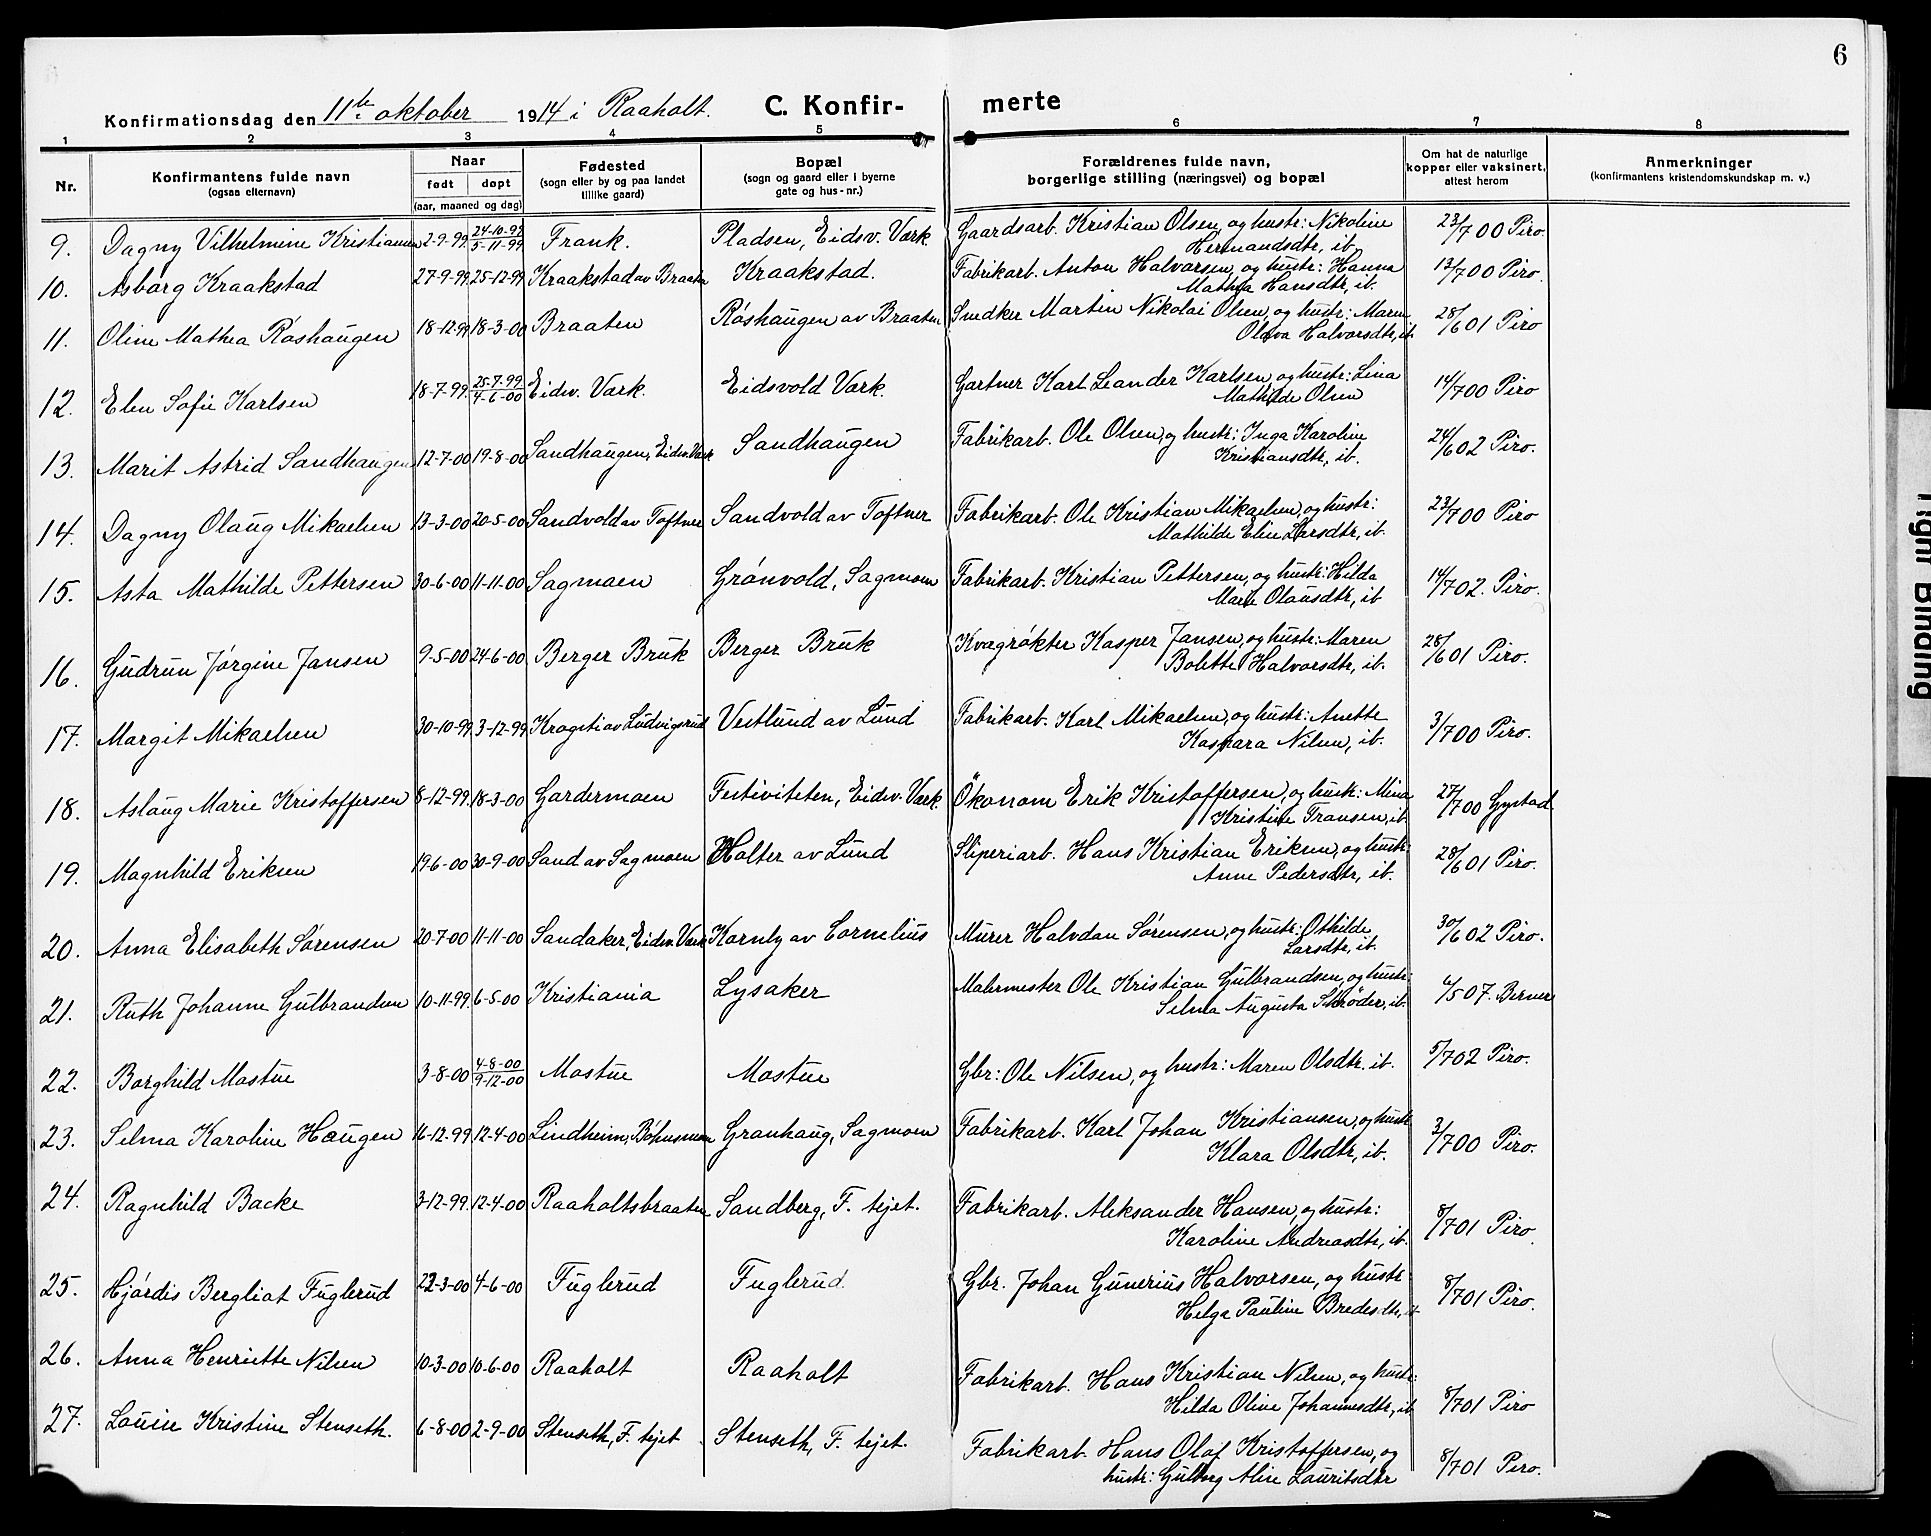 6
Konfirmationsdag den 11te oktober 1914 i Raaholt. C. Konfir- merte
1 2 3 4 5 6 7 8
Nr. Konfirmantens fulde navn (ogsaa efternavn) Naar født døpt (aar, maaned og dag) Fødested (sogn eller by og paa landet tillike gaard) Bopæl (sogn og gaard eller i byerne gate og hus-nr.) Forældrenes fulde navn, borgerlige stilling (næringsvei) og bopæl Om hat de naturlige kopper eller vaksinert, attest herom Anmerkninger (konfirmantens kristendomskundskap m. v.)
9. Dagny Vilhelmine Kristiansen 2-9-99 24-10-99 5-11-99 Frank. Pladsen, Eidsv. Værk. Gaardsarb. Kristian Olsen, og hustr: Nikoline 23/700 Piro.
Hermandsdtr, ib.
10. Asborg Kraakstad 27-9-99 25-12-99 Kraakstad av Braaten Kraakstad. Fabrikarb. Anton Halvorsen, og hustr: Hanna 13/700 Piro.
Mathea Hansdtr, ib.
11. Oline Mathea Røshaugen 18-12-99 18-3-00 Braaten Røshaugen av Braaten Snedker Martin Nikolai Olsen, og hustr: Maren 28/601 Piro
Olava Halvorsdtr, ib.
12. Elen Sofie Karlsen 18-7-99 25-7-99 4-6-00 Eidsv. Værk. Eidsvold Værk. Gartner Karl Leander Karlsen, og hustr: Lina 14/700 Piro
Mathilde Olsen
13. Marit Astrid Sandhaugen 12-7-00 19-8-00 Sandhaugen, Eidsv. Værk Sandhaugen Fabrikarb. Ole Olsen, og hustr: Inga Karoline 24/602 Piro.
Kristiansdtr, ib.
14. Dagny Olaug Mikaelsen 13-3-00 20-5-00 Sandvold av Toftner Sandvold av Toftner Fabrikarb. Ole Kristian Mikaelsen, og hustr: 23/700 Piro
Mathilde Eline Larsdtr, ib.
15. Asta Mathilde Pettersen 30-6-00 11-11-00 Sagmoen Grønvold, Sagmoen Fabrikarb. Kristian Pettersen, og hustr: Hilda 14/702. Piro.
Marie Olausdtr, ib
16. Gudrun Jørgine Jansen 9-5-00 24-6-00 Berger Bruk Berger Bruk Kvægrøkter Kasper Jansen, og hustr: Maren 28/601 Piro.
Bolette Halvorsdtr, ib.
17. Margit Mikaelsen 30-10-99 3-12-99 Krogsti av Ludvigsrud Vestlund av Lund Fabrikarb. Karl Mikaelsen, og hustr: Anette 3/700 Piro.
Kaspara Nilsen, ib.
18. Aslaug Marie Kristoffersen 8-12-99. 18-3-00 Gardermoen Festiviteten, Eidsv. Værk. Økonom Erik Kristoffersen, og hustr: Mina 27/700 Gystad
Kristine Fransen, ib.
19. Magnhild Eriksen 19-6-00 30-9-00 Sand av Sagmoen Holter av Lund Sliperiarb. Hans Kristian Eriksen, og hustr: 28/601 Piro.
Anne Pedersdtr, ib.
20. Anna Elisabeth Sørensen 20-7-00 11-11-00 Sandaker, Eidsv. Værk Kornly av Cornelius Murer Halvdan Sørensen, og hustr: Othilde 30/602 Piro.
Larsdtr, ib.
21. Ruth Johanne Gulbrandsen 10-11-99 6-5-00 Kristiania Lysaker Malermester Ole Kristian Gulbrandsen, og hustr: 4/507. Berner
Selma Augusta Schrøder, ib.
22. Borghild Mostue 3-8-00 4-8-00 9-12-00 Mostue Mostue Gbr: Ole Nilsen, og hustr: Maren Olsdtr. ib. 5/702 Piro.
23. Selma Karoline Haugen 16-12-99 12-4-00 Lindheim, Bøhnsmoen Granhaug, Sagmoen Fabrikarb. Karl Johan Kristiansen, og hustr 3/700 Piro.
Klara Olsdtr, ib.
24. Ragnhild Backe 3-12-99. 12-4-00 Raaholtsbraaten Sandberg, F. tejet. Fabrikarb. Aleksander Hansen, og hustr: 8/701 Piro.
Karoline Andreasdtr, ib.
25. Hjørdis Bergliot Fuglerud 22-3-00 4-6-00 Fuglerud Fuglerud. Gbr. Johan Gunerius Halvorsen, og hustr: 8/701 Piro.
Helga Pauline Bredesdtr, ib
26. Anna Henriette Nilsen 10-3-00 10-6-00 Raaholt Raaholt Fabrikarb. Hans Kristian Nilsen, og hustr: 8/701 Piro
Hilda Oline Johannesdtr, ib
27. Louise Kristine Stenseth. 6-8-00 2-9-00 Stenseth, F. tejet Stenseth, F. tejet. Fabrikarb. Hans Olaf Kristoffersen, og 8/701 Piro.
hustr: Gulborg Aline Lauritsdtr